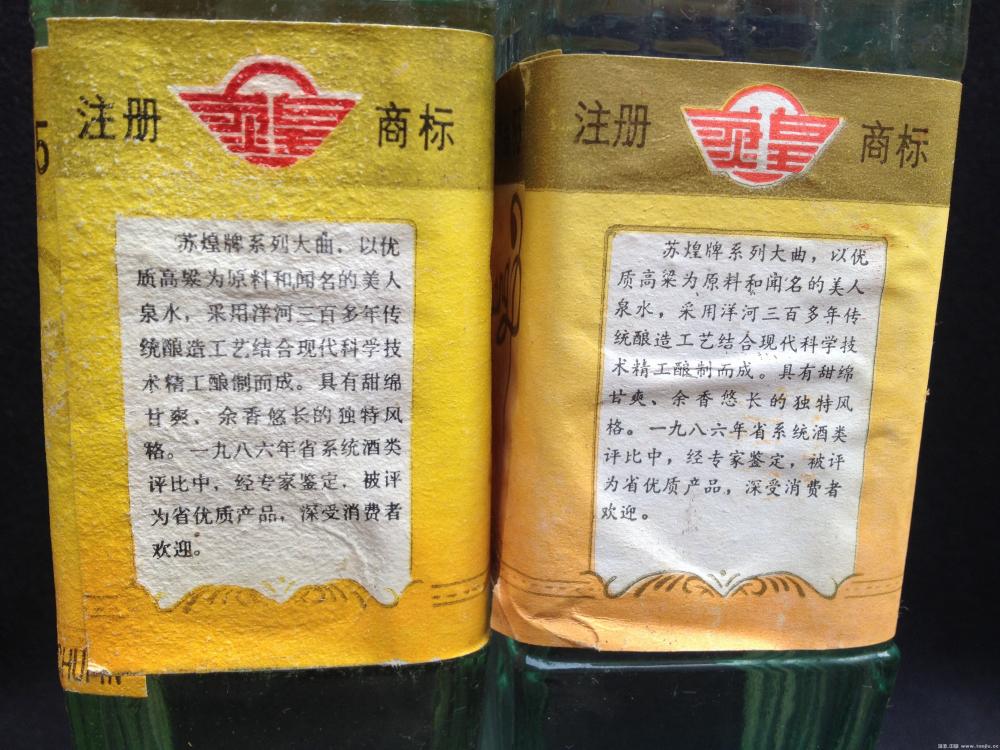 注册 商标
苏煌牌系列大曲，以优
质高粱为原料和闻名的美人
泉水，采用洋河三百多年传
统酿造工艺结合现代科学技
术精工酿制而成。具有甜绵
甘爽、余香悠长的独特风
格。一九八六年省系统酒类
评比中，经专家鉴定，被评
为省优质产品，深受消费者
欢迎。
注册 商标
苏煌牌系列大曲，以优
质高粱为原料和闻名的美人
泉水，采用洋河三百多年传
统酿造工艺结合现代科学技
术精工酿制而成。具有甜绵
甘爽、余香悠长的独特风
格。一九八六年省系统酒类
评比中，经专家鉴定，被评
为省优质产品，深受消费者
欢迎。